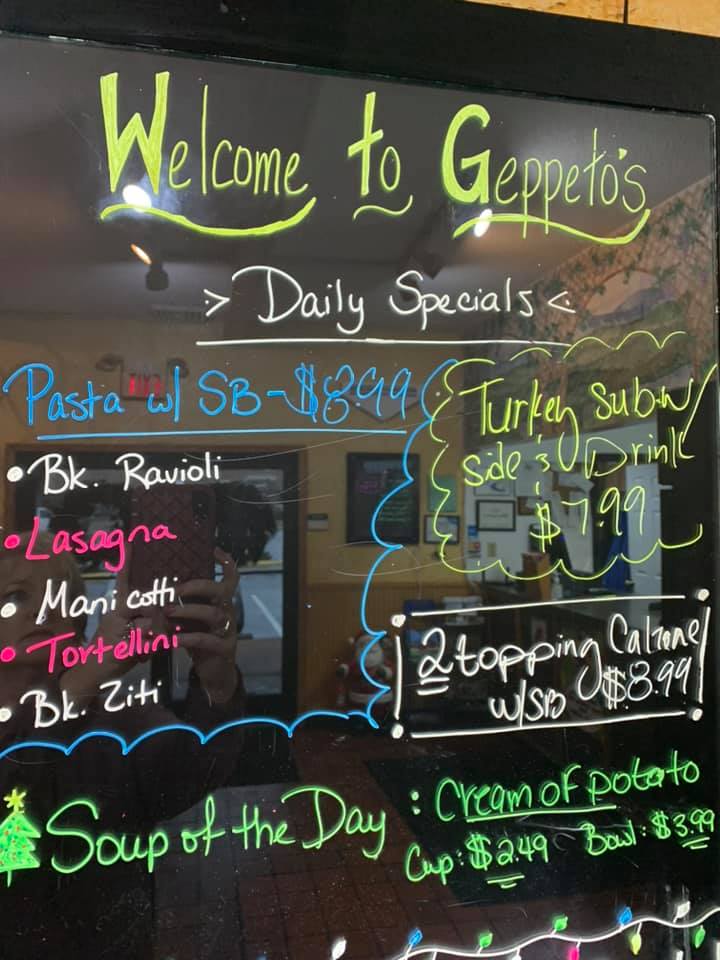 Welcome to Geppeto's
> Daily Specials <
Pasta w/ SB - $8.99
• Bk. Ravioli
• Lasagna
• Manicotti
• Tortellini
• Bk. Ziti
Turkey Sub w/
Side & Drink
$7.99
2 topping Calzone
w/SB $8.99
Soup of the Day : Cream of potato
Cup: $2.49 Bowl: $3.99